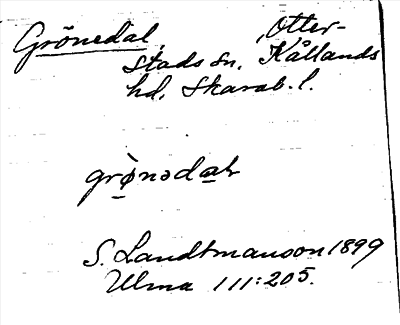 Grönedal, Otter-
stads sn. Kållands
hd. Skarab. l.
S. Landtmanson 1899
Ulma 111:205.